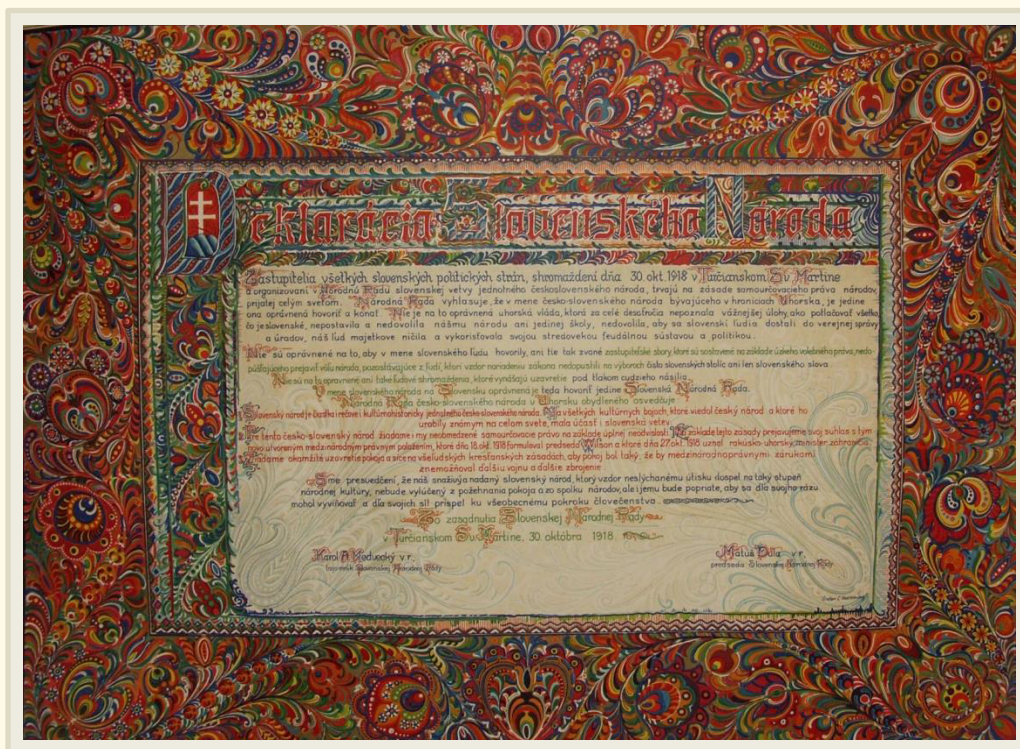 Deklarácia Slovenského Národa
Zastupitelia všetkých slovenských politických strán, shromaždení dňa 30 okt. 1918 v Turčianskom Sv. Martine
a organizovaní v Národnú Radu slovenskej vetvy jednotného československého národa, trvajú na zásade samourčovacieho práva národov,
prijatej celým svetom. Národná Rada vyhlasuje, že v mene česko-slovenského národa bývajúceho v hraniciach Uhorska, je jedine
ona oprávnená hovoriť a konať. Nie je na to oprávnená uhorská vláda, ktorá za celé desaťročia nepoznala vážnejšej úlohy, ako potlačovať všetko,
čo je slovenské, nepostavila a nedovolila nášmu národu ani jedinej školy, nedovolila, aby sa slovenskí ľudia dostali do verejnej správy
a úradov, náš ľud majetkove ničila a vykorisťovala svojou stredovekou feudálnou sústavou a politikou.
Nie sú oprávnené na to, aby v mene slovenského ľudu hovorily, ani tie tak zvané zastupiteľské sbory, ktoré sú sostavené na základe úzkeho volebného práva, nedo-
púšťajúceho prejaviť vôľu národa, pozostávajúce z ľudí, ktorí vzdor nariadeniu zákona nedopustili na výboroch čisto slovenských stolíc ani len slovenského slova.
Nie sú na to oprávnené ani také ľudové shromaždenia, ktoré vynášajú uzavretie pod tlakom cudzieho násilia.
V mene slovenského národa na Slovensku oprávnená je teda hovoriť jedine Slovenská Národná Rada.
Národná Rada česko-slovenského národa v Uhorsku obydleného osvedčuje
Slovenský národ je čiastka i rečove i kultúrno-historicky jednotného česko-slovenského národa. Na všetkých kultúrnych bojoch, ktoré viedol český národ a ktoré ho
urobily známym na celom svete, mala účasť i slovenská vetev.
Pre tento česko-slovenský národ žiadame i my neobmedzené samourčovacie právo na základe úplnej neodvislosti. Na základe tejto zásady prejavujeme svoj súhlas s tým
novo utvoreným medzinárodným právnym položením, ktoré dňa 18. okt. 1918 formuloval predseda Wilson a ktoré dňa 27. okt. 1918 uznal rakúsko-uhorský minister zahraničia.
Žiadame okamžité uzavretie pokoja a síce na všeľudských kresťanských zásadách, aby pokoj bol taký, že by medzinárodnoprávnymi zárukami
znemožňoval ďalšiu vojnu a ďalšie zbrojenie
Sme presvedčení, že náš snaživý a nadaný slovenský národ, ktorý vzdor neslýchanému útisku dospel na taký stupeň
národnej kultúry, nebude vylúčený z požehnania pokoja a zo spolku národov, ale i jemu bude popriate, aby sa dľa svojho rázu
mohol vyvinovať a dľa svojich síl prispel ku všeobecnému pokroku človečenstva.
Zo zasadnutia Slovenskej Národnej Rady
v Turčianskom Sv. Martine, 30. októbra 1918
Karol A Medvecký v.r.
tajomník Slovenskej Národnej Rady
Matúš Dula v.r.
predseda Slovenskej Národnej Rady